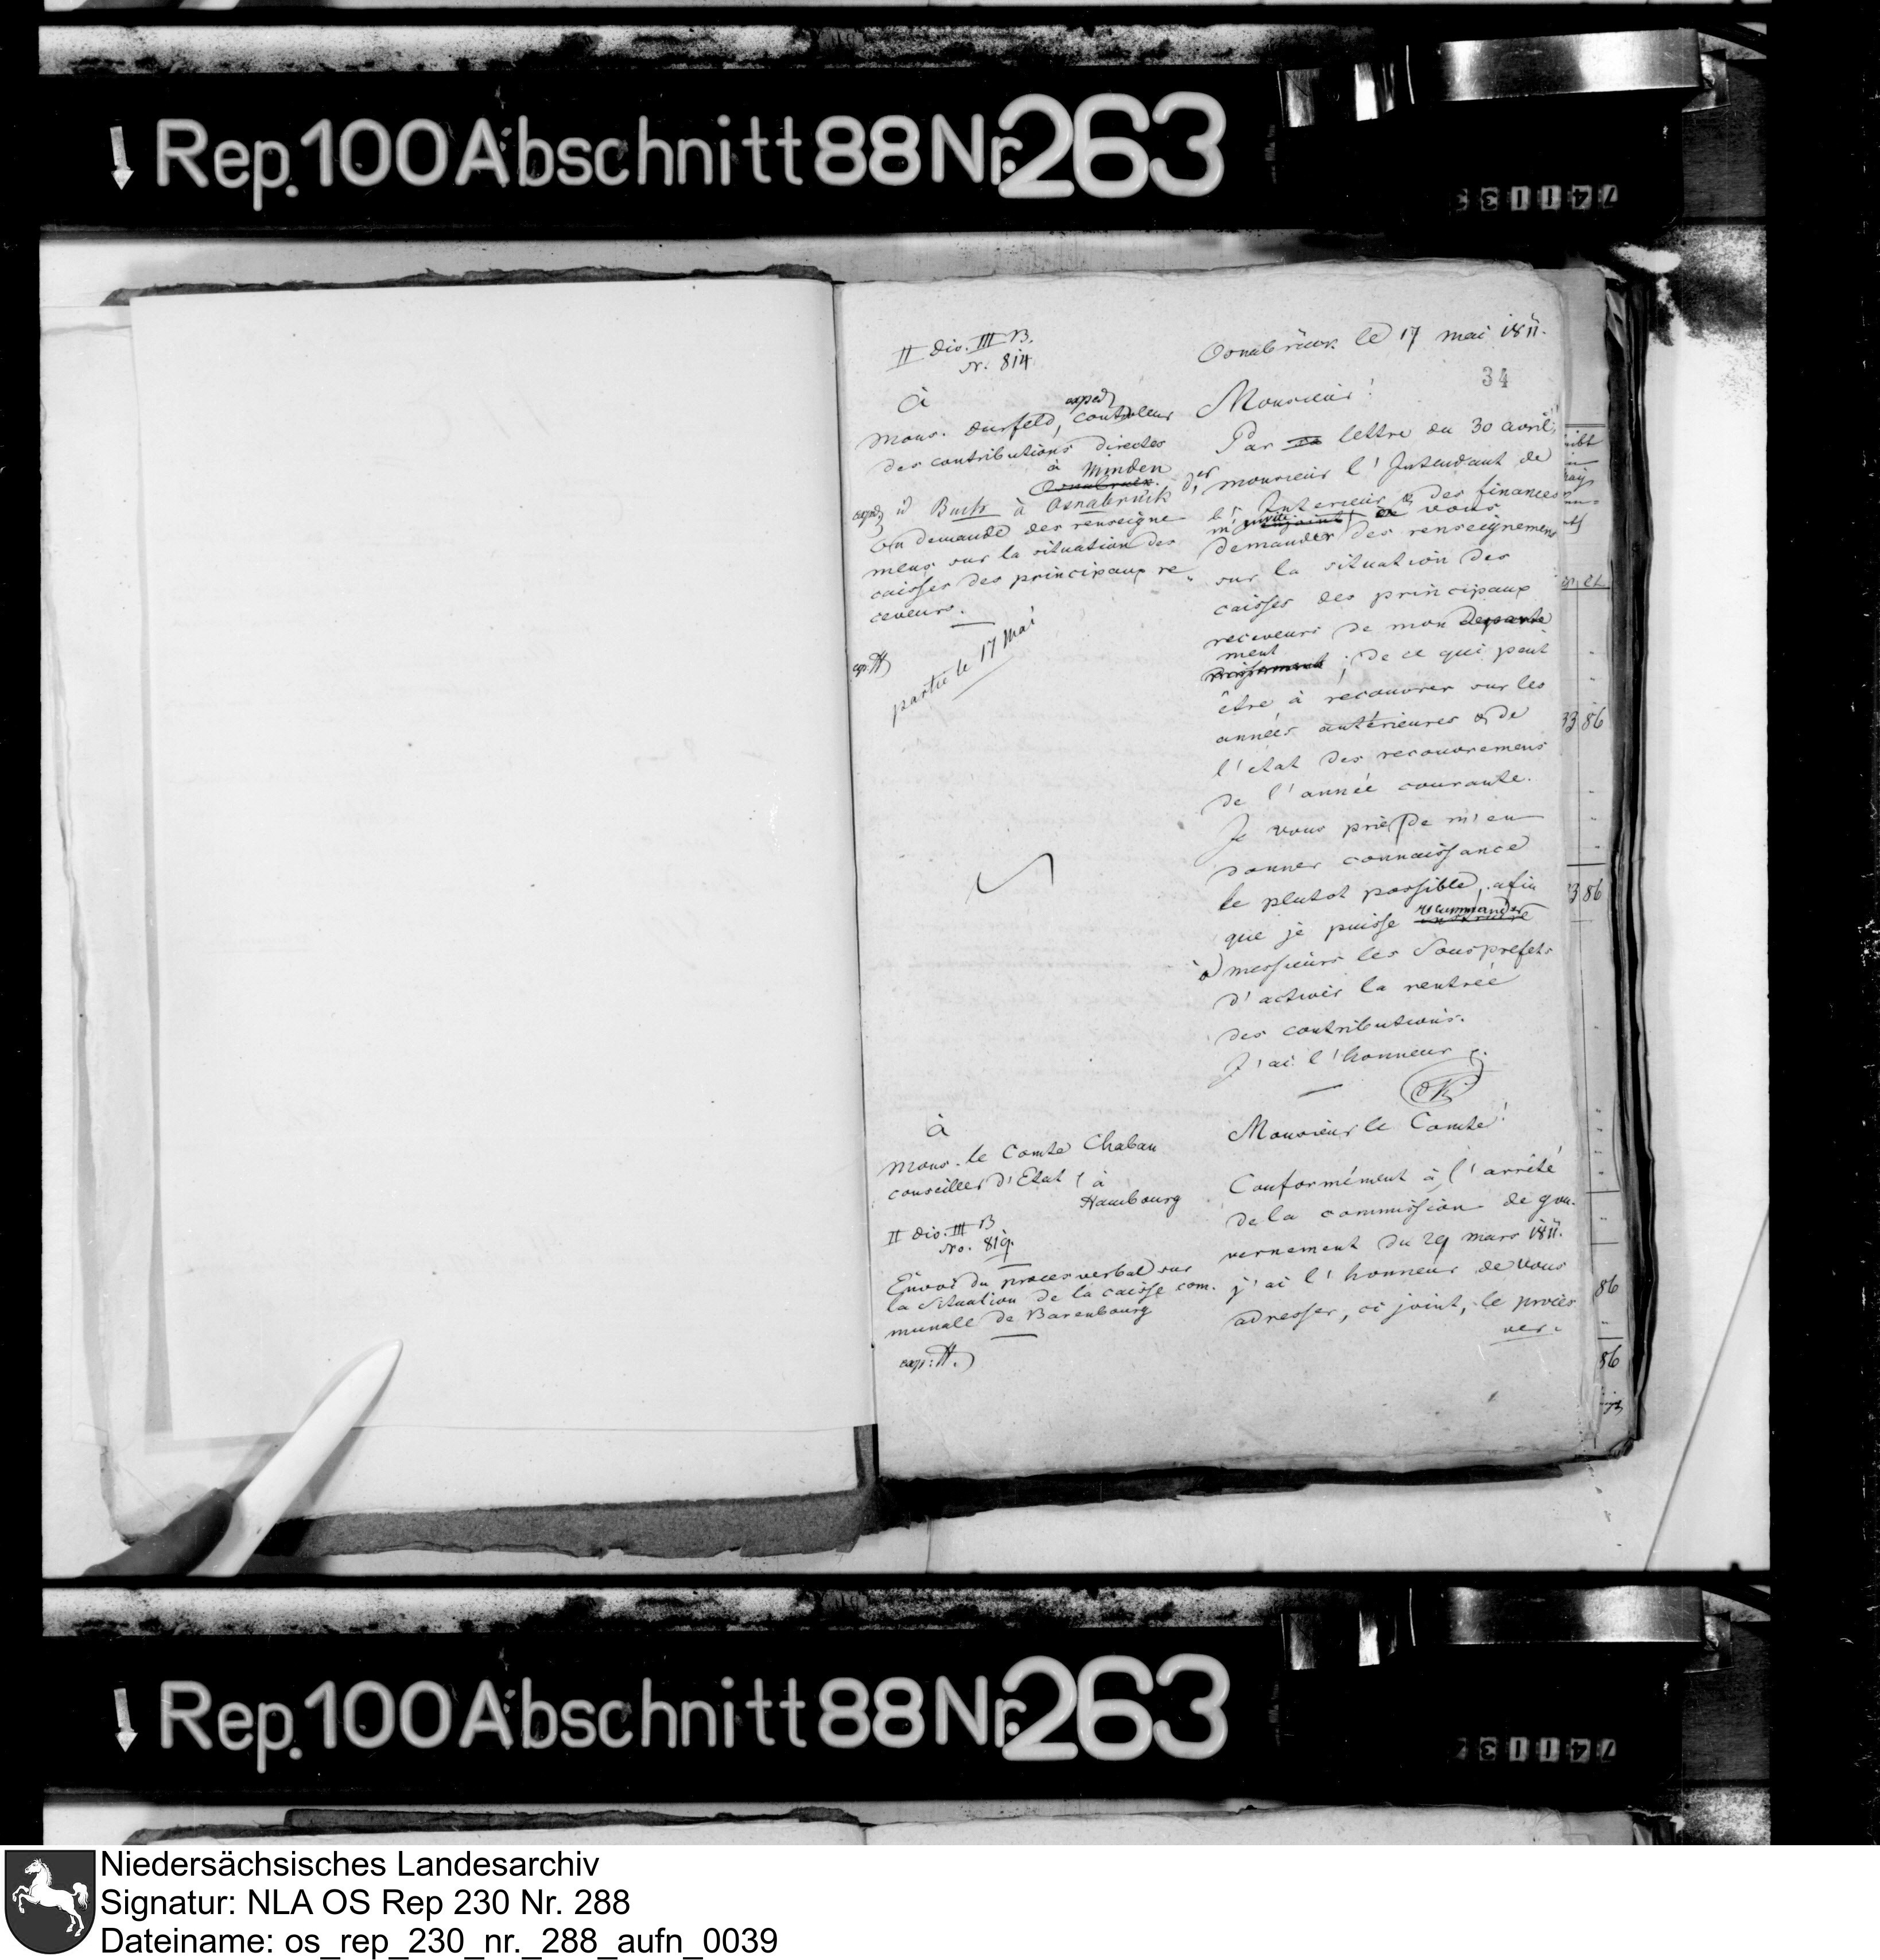 Rep. 100 Abschnitt 88 Nr. 263
II Div. III B.
Nr. 814
à
Mons. Durfeld, Controleur
exped
des contributions directes
à Minden
Osnabruck.
id Buch à Osnabrück
On demande des renseigne
mens sur la situation des
caisses des principaux re
ceveurs.
partie le 17 Mai
Osnabrück le 17 mai 1811.
34
Monsieur!
Par la lettre du 30 avril,
monsieur l'Intendant de
l'Interieur & des finances
m'invite enjoint de vous
demander des renseignemens
sur la situation des
caisses des principaux
receveurs de mon Departe
ment
; de ce qui peut
être à recouvrer sur les
années antérieures & de
l'etat des recouvremens
de l'année courante.
Je vous prie de m'en
donner connaissance
le plutot possible, afin
que je puisse recommander
à messieurs les Sousprefets
d'activer la rentrée
des contributions.
J'ai l'honneur
à
Mons. le Comte Chaban
conseiller d'Etat, à
Hambourg
II Div. III B
No. 819.
Envoi du procesverbal sur
la situation de la caisse com.
munale de Barenbourg
Monsieur le Comte!
Conformément à l'arrêté
de la commission de gou.
vernement du 29 mars 1811.
j'ai l'honneur de vous
adresser, ci joint, le procès
ver.
33 86
3 86
86
86
Rep. 100 Abschnitt 88 Nr. 263
Niedersächsisches Landesarchiv
Signatur: NLA OS Rep 230 Nr. 288
Dateiname: os_rep_230_nr._288_aufn_0039